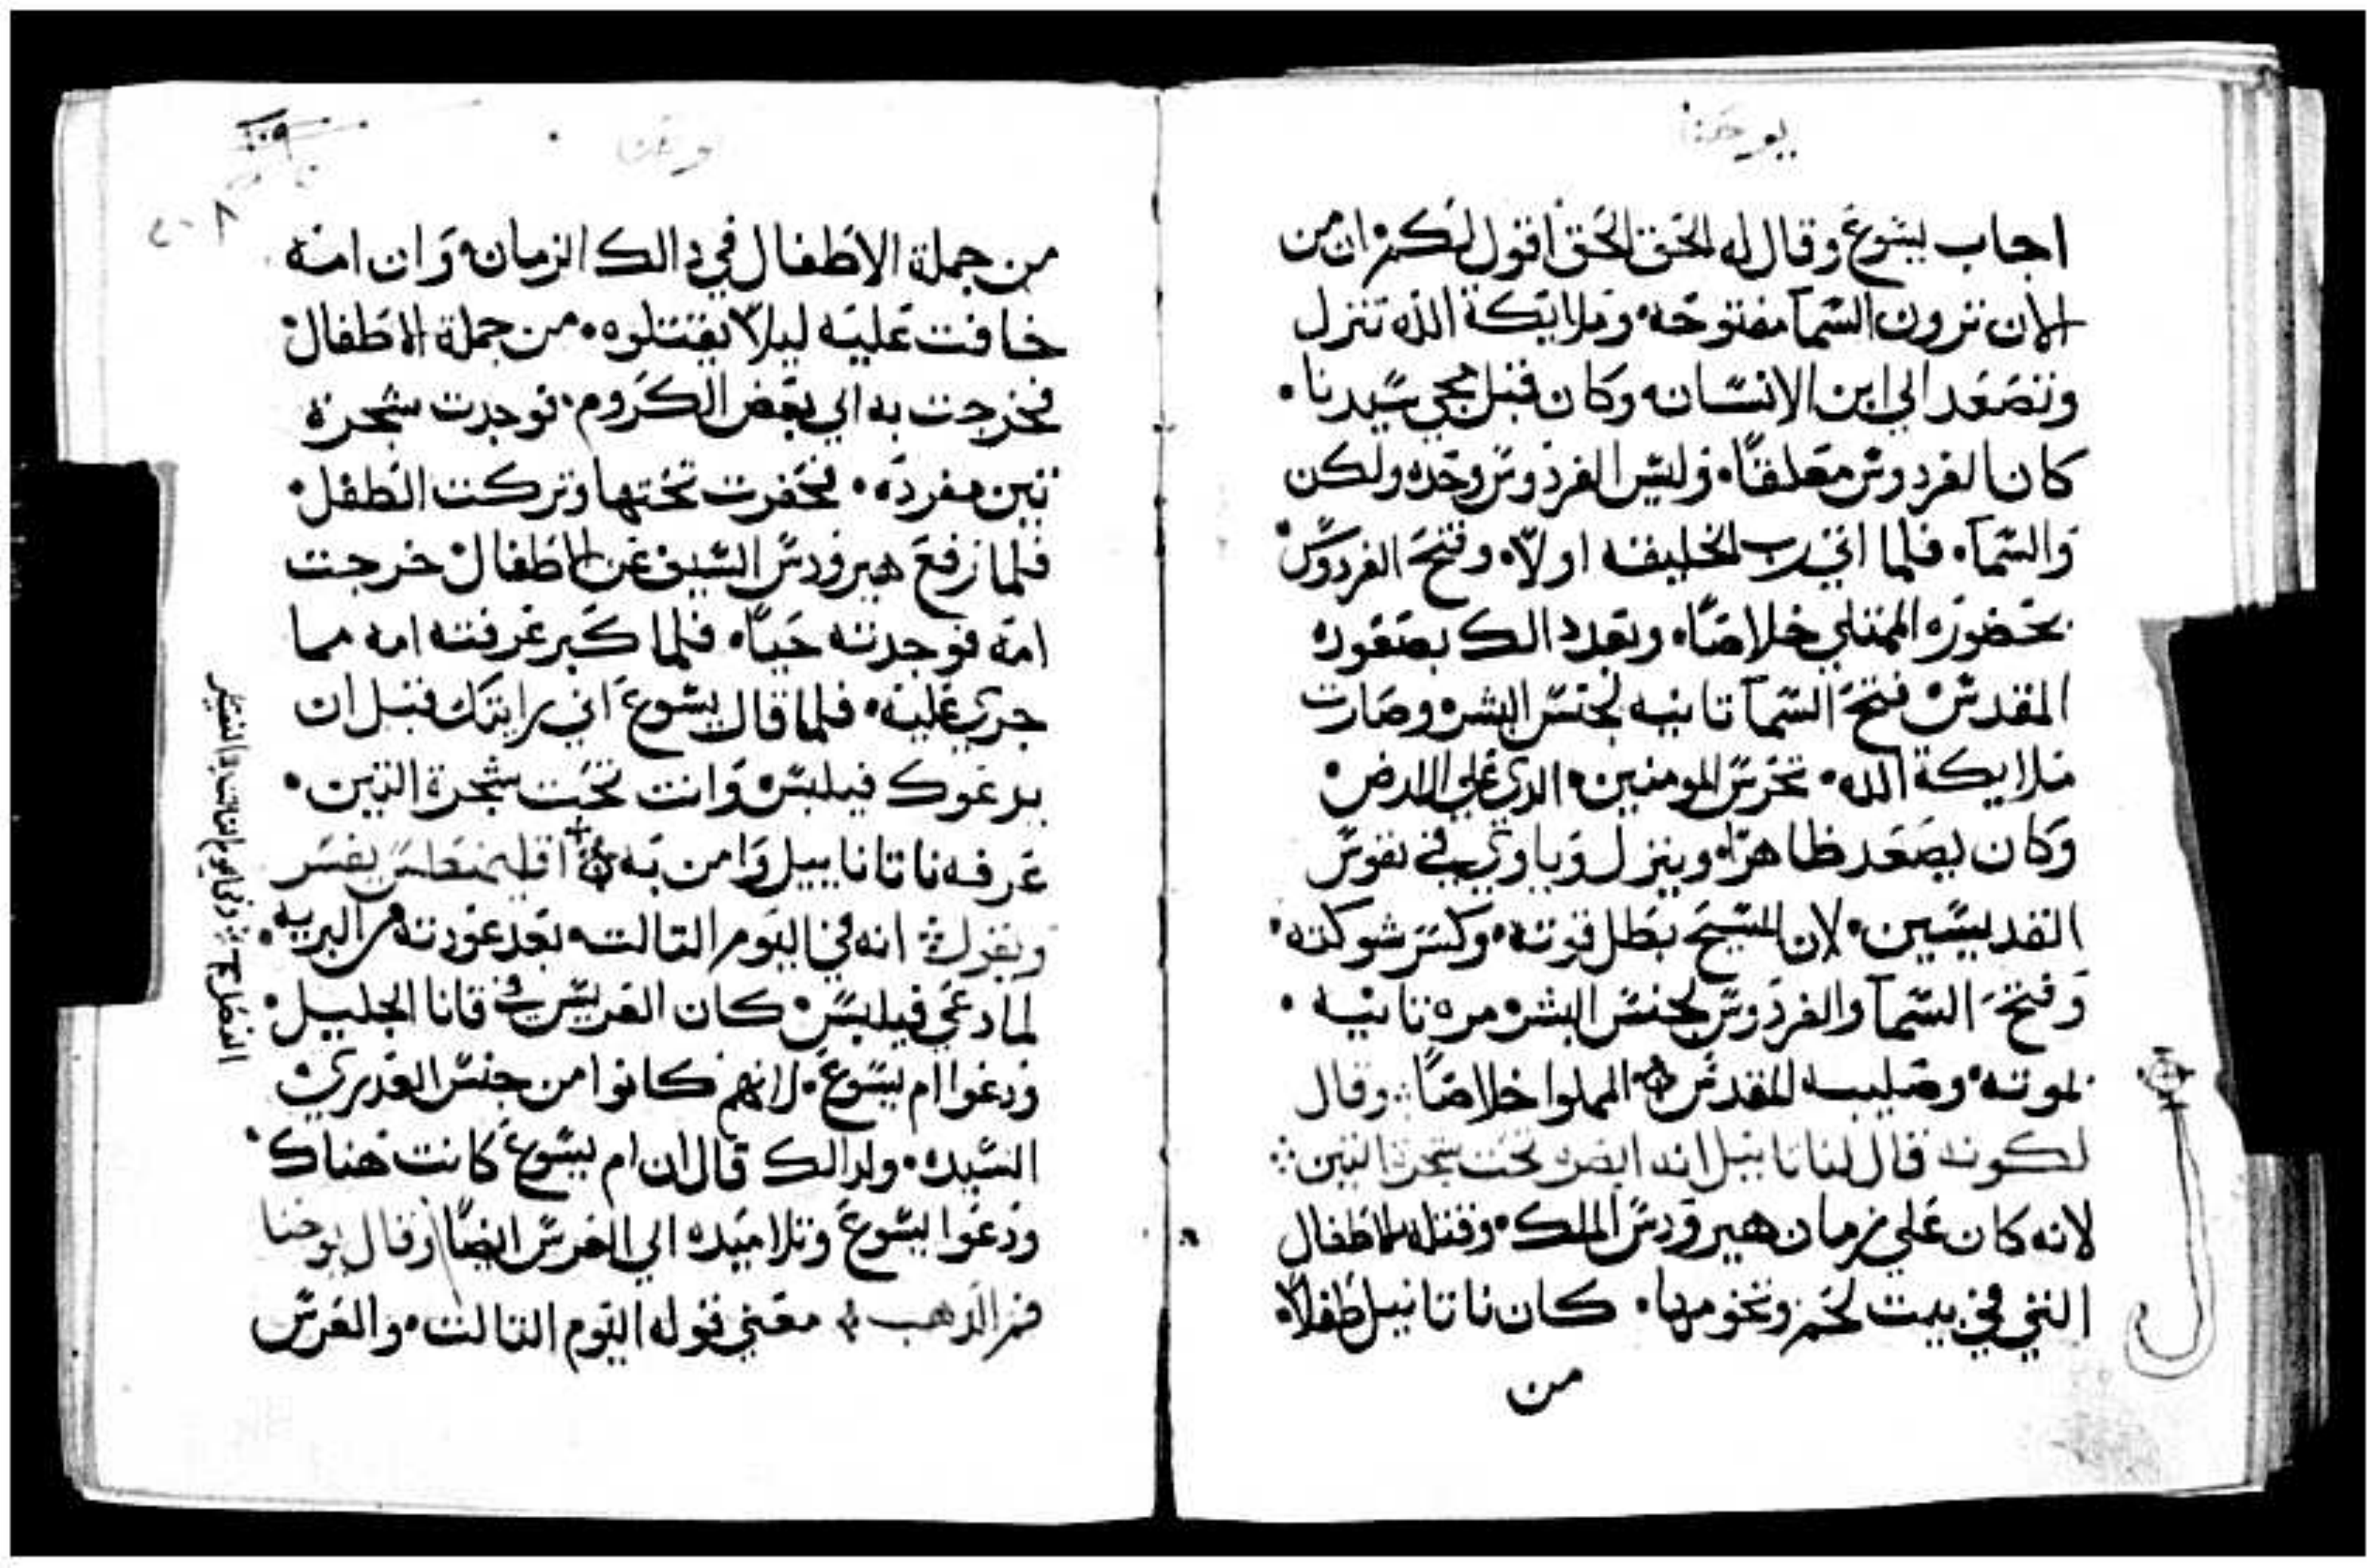 يوحنا
اجاب يشوع وقال له الحق الحق اقول لكم ان من
الان ترون السمآ مفتوحه وملايكة الله تنزل
وتصعد الي ابن الانسان وكان قبل مجي سيدنا
كان الفردوس معلقاً وليس الفردوس وحده ولكن
والسمآ فلما اتي رب الخليقه اولاً وفتح الفردوس
بحضوره الممتلي خلاصاً وبعد دالك بصعوده
المقدس فتح السمآ تانيه لجنس البشر وصارت
ملايكة الله تحرس المومنين الدي علي الارض
وكان يصعد ظاهراً وينزل وياوي في نفوس
القديسين لان المسيح بطل قوته وكسر شوكته
وفتح السمآ والفردوس لجنس البشر مره تانيه
لموته وصليبه المقدس المملوا خلاصاً وقال
لكونه قال لناتانيل انه ابصره تحت شجرة التين
لانه كان علي زمان هيرودس الملك وقتله للاطفال
التي في بيت لحم وتخومها كان ناتانيل طفلاً
من
يوحنا
من جملة الاطفال في دالك الزمان وان امه
خافت عليه ليلا يقتلوه من جملة الاطفال
فخرجت به الي بعض الكروم فوجدت شجرة
تين مفرده فحفرت تحتها وتركت الطفل
فلما رفع هيرودس السيف عن الاطفال خرجت
امه فوجدته حياً فلما كبر عرفته امه مما
جري عليه فلما قال يشوع اني رايتك قبل ان
يدعوك فيلبس وانت تحت شجرة التين
عرفه ناتاناييل وامن به اقليمنطس يفسر
ويقول انه في اليوم التالت بعد عودته من البريه
لما دعي فيلبس كان العريس في قانا الجليل
ودعوا ام يسوع لانهم كانوا من جنس العدري
السيده ولدالك قال ان ام يسوع كانت هناك
ودعوا يسوع وتلاميده الي العرس ايضاً وقال يوحنا
فم الدهب معني قوله اليوم التالت والعرس